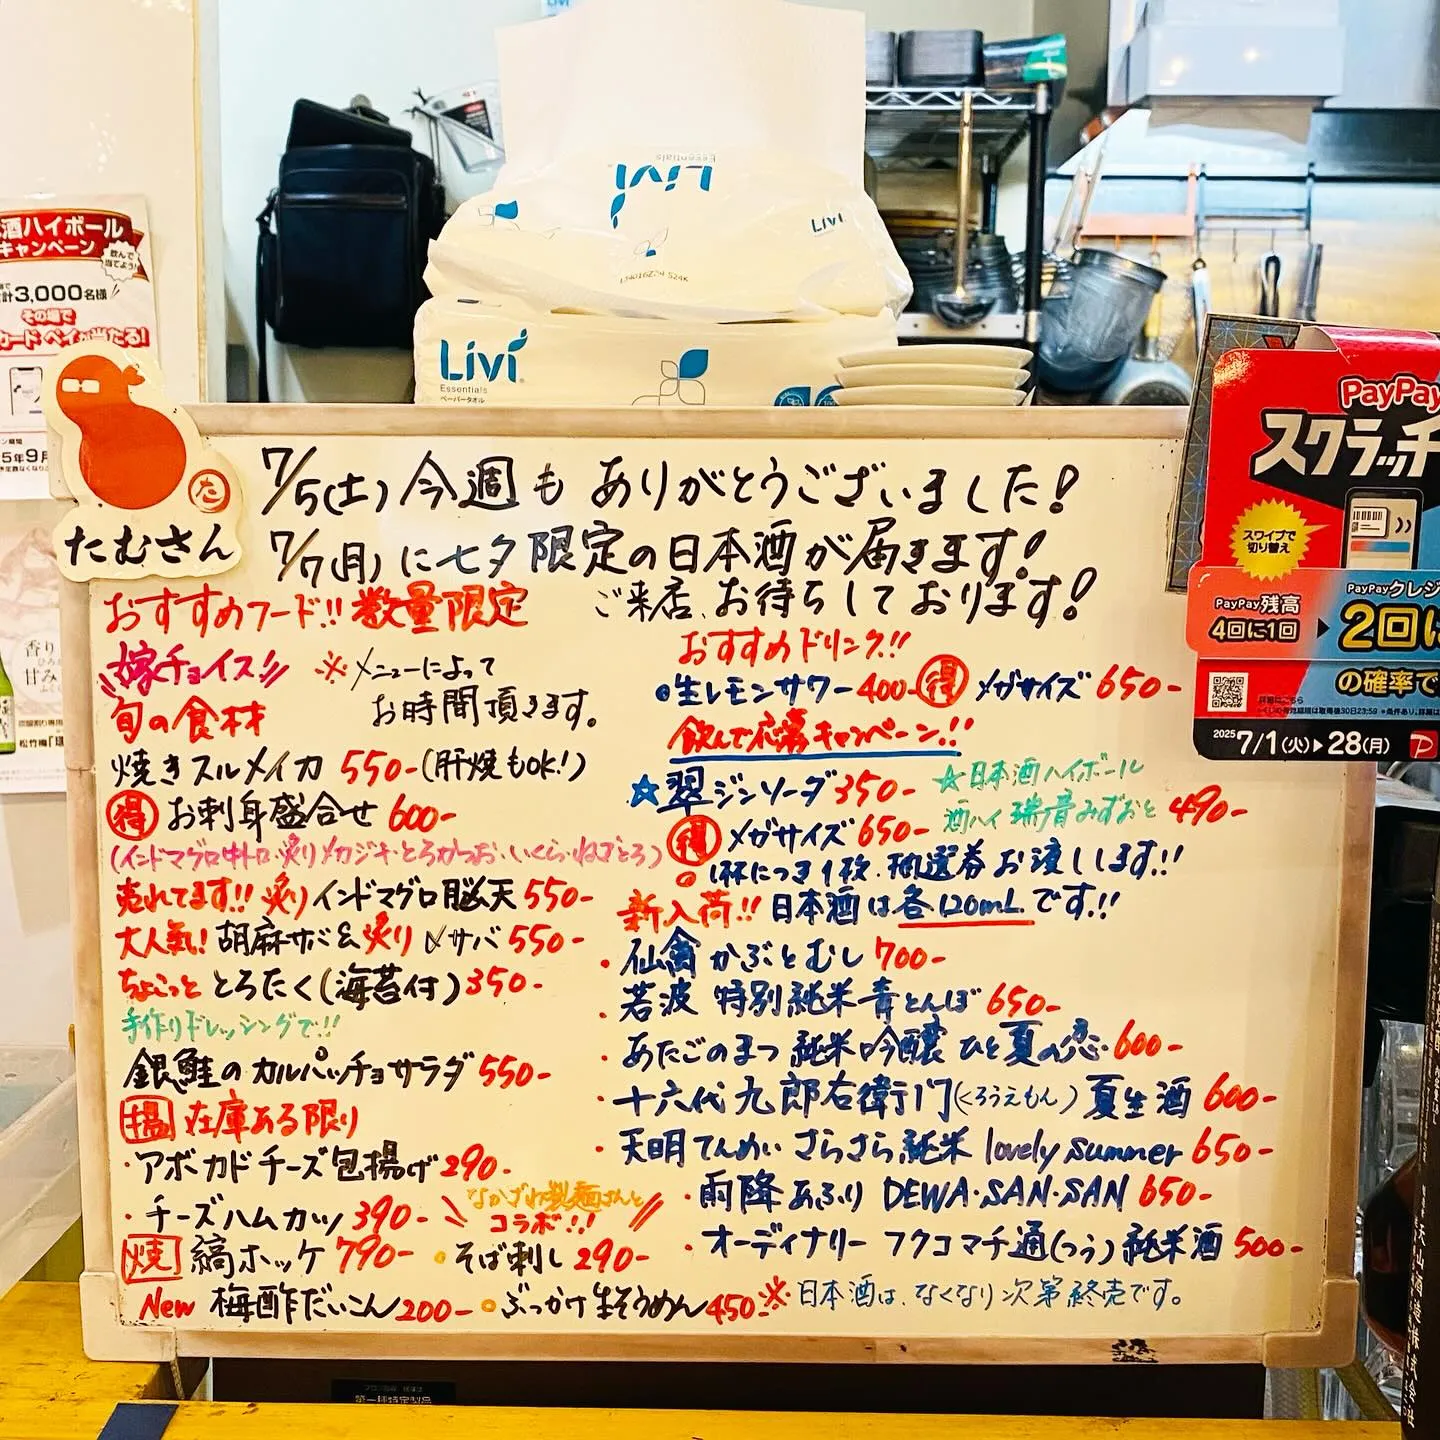 酒ハイボール
キャンペーン
飲んで
当てよう!
計3,000名様
その場で
カードペイが当たる!
香り
甘み
Livi
Essentials
Livi
Livi
Essentials
ペーパータオル
たむさん
た
7/5(土) 今週も ありがとうございました!
7/7(月)に七夕限定の日本酒が届きます!
ご来店、お待ちしております!
おすすめフード!! 数量限定
嫁チョイス!!
※メニューによって
お時間頂きます。
旬の食材
焼きスルメイカ 550- (肝焼もOK!)
得 お刺身盛合せ 600-
(インドマグロ中トロ・炙りメカジキ・とろかつお・いくら・ねぎとろ)
売れてます!! 炙りインドマグロ脳天 550-
大人氣! 胡麻サバ&炙り〆サバ 550-
ちょこっと とろたく(海苔付) 350-
手作りドレッシングで!!
銀鮭のカルパッチョサラダ 550-
揚 在庫ある限り
・アボカドチーズ包揚げ 290-
・チーズハムカツ 390-
なかざわ製麺さんと
コラボ!!
焼 縞ホッケ 790- ○そば刺し 290-
New 梅酢だいこん 200- ○ぶっかけ生そうめん 450
おすすめドリンク!!
●生レモンサワー 400- 得 メガサイズ 650-
飲んで応募キャンペーン!!
☆翠ジンソーダ 350-
☆日本酒ハイボール
酒ハイ 瑞音みずおと 490-
得 メガサイズ 650-
○1杯につき1枚、抽選券お渡しします!!
新入荷!! 日本酒は各120mLです!!
・仙禽 かぶとむし 700-
・若波 特別純米 青とんぼ 650-
・あたごのまつ 純米吟醸 ひと夏の恋 600-
・十六代九郎右衛門(くろうえもん) 夏生酒 600-
・天明てんめい さらさら純米 lovely summer 650-
・雨降あふり DEWA・SAN・SAN 650-
・オーディナリー フクコマチ通(つう) 純米酒 500-
※日本酒は、なくなり次第終売です。
PayPay
スクラッチ
スワイプで
切り替え
PayPay残高
4回に1回
PayPayクレジ
2回に
の確率で
2025 7/1(火)▶28(月)